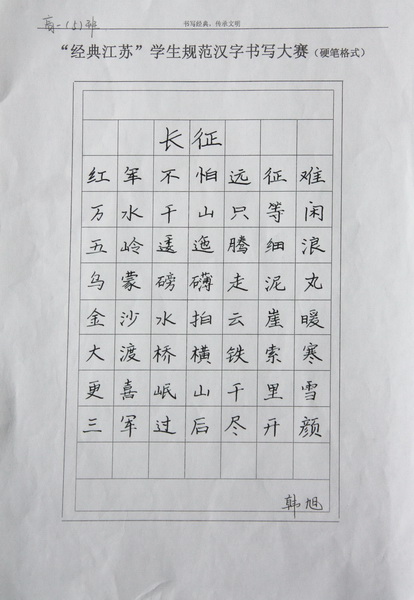 高一（5）班
书写经典，传承文明
“经典江苏”学生规范汉字书写大赛（硬笔格式）
长征
红军不怕远征难
万水千山只等闲
五岭逶迤腾细浪
乌蒙磅礴走泥丸
金沙水拍云崖暖
大渡桥横铁索寒
更喜岷山千里雪
三军过后尽开颜
韩旭